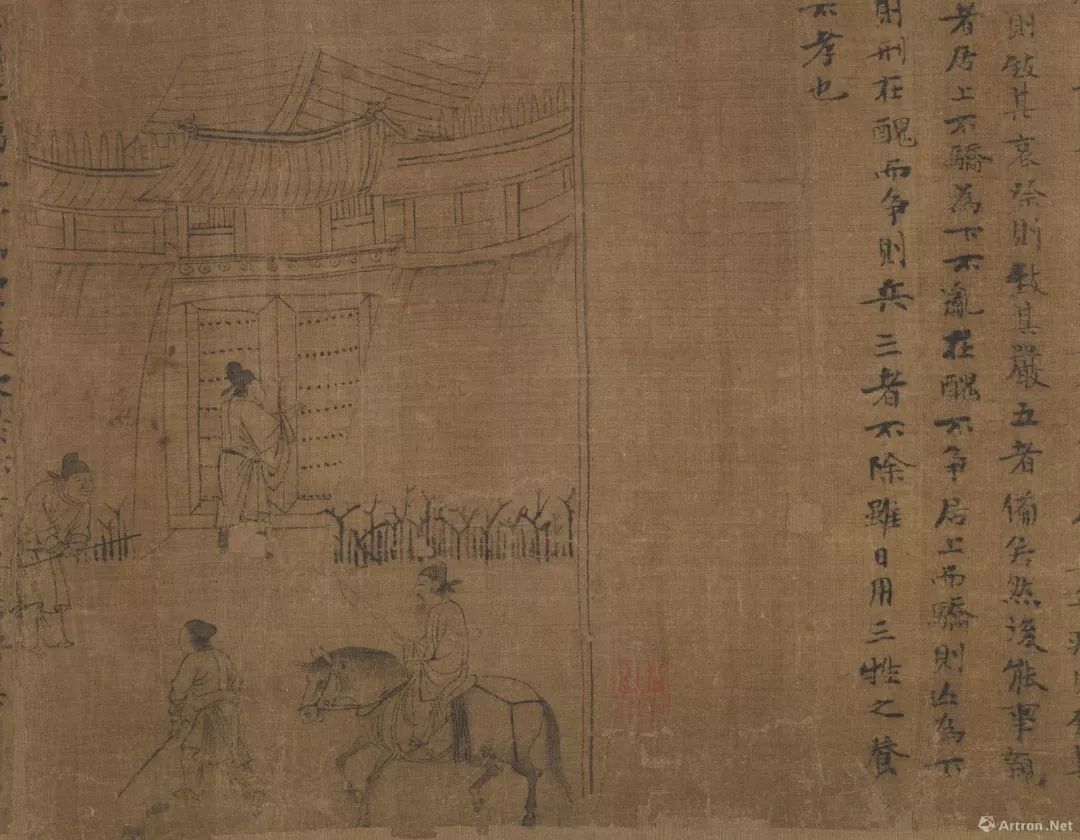 則致其哀祭則致其嚴五者備矣然後能事親
者居上不驕為下不亂在醜不争居上而驕則亾為下
則刑在醜而争則兵三者不除雖日用三牲之養
不孝也
Artron.Net